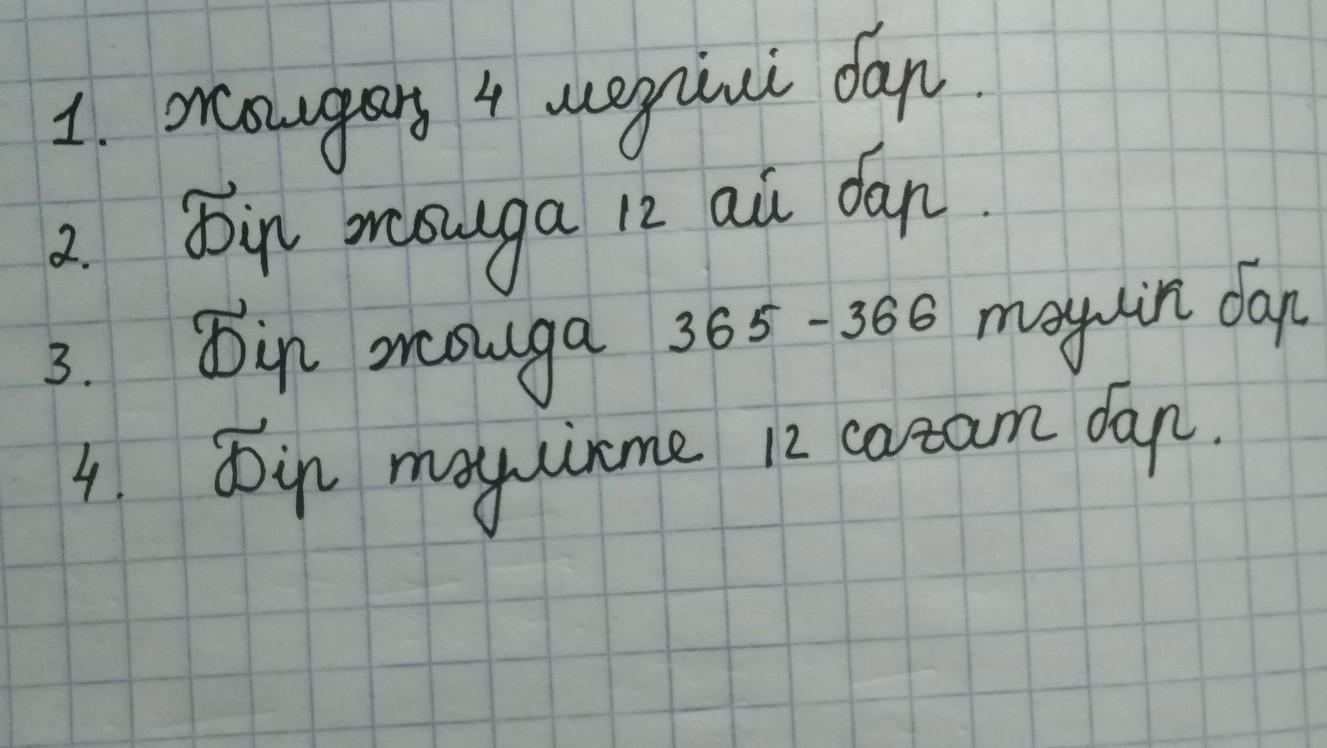 1. Жылдың 4 мезгілі бар.
2. Бір жылда 12 ай бар.
3. Бір жылда 365-366 тәулік бар
4. Бір тәулікте 12 сағат бар.